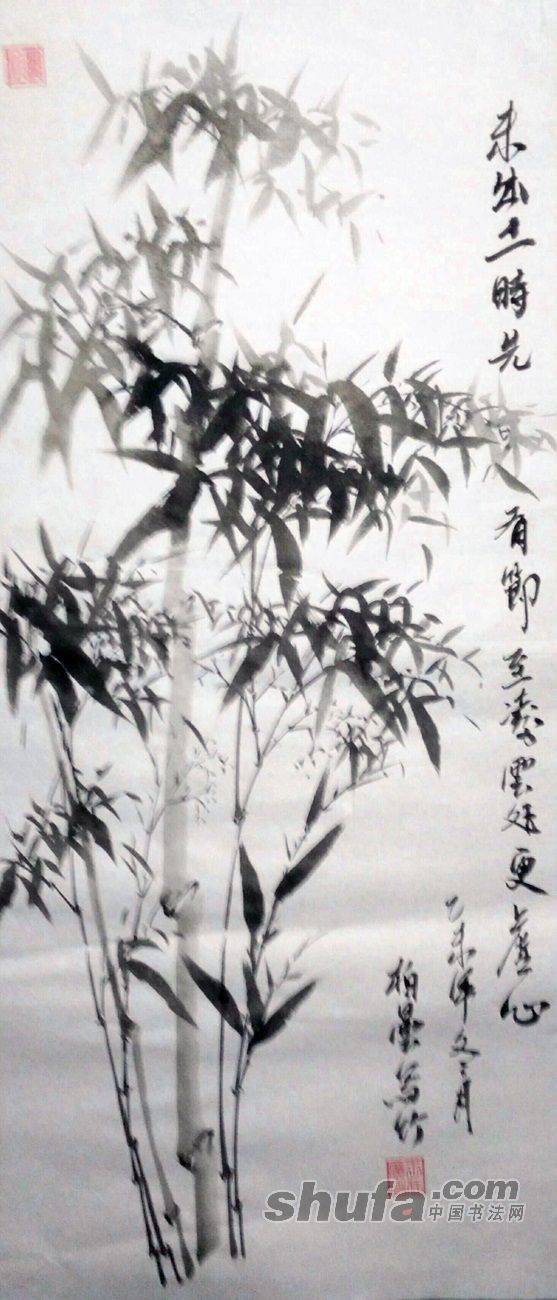 未出土時先 有節至凌雲處更虛心
乙未年又三月
柏墨寫竹
shufa.com
中国书法网